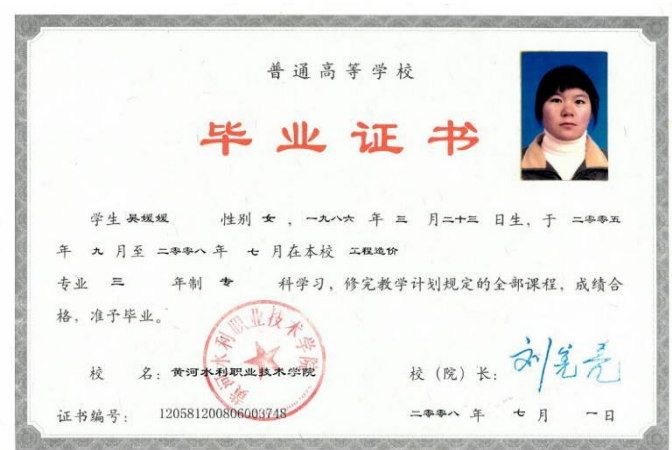 普通高等学校
毕业证书
学生 吴媛媛 性别 女 ，一九八六 年 三 月二十三 日生，于 二零零五
年 九 月至 二零零八 年 七 月在本校 工程造价
专业 三 年制 专 科学习，修完教学计划规定的全部课程，成绩合
格，准予毕业。
黄河水利职业技术学院
校 名：黄河水利职业技术学院 校（院）长：
证书编号：120581200806003748 二零零八 年 七 月 一日